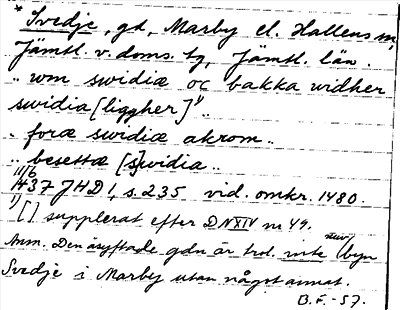 * Svedje, gd, Marby el. Hallens sn,
Jämtl. v. doms. tg, Jämtl. län.
.. wm swidiæ oc bakka widher
swidia [liggher]¹⁾
.. foræ swidiæ akrom ..
.. besettæ [s]widia ..
11/6
1437 JHD I, s. 235 vid. omkr. 1480.
1) [ ] supplerat efter DN XIV nr 49.
Anm. Den åsyftade gdn är trol. inte nuv. byn
Svedje i Marby utan något annat.
B.F. -57.